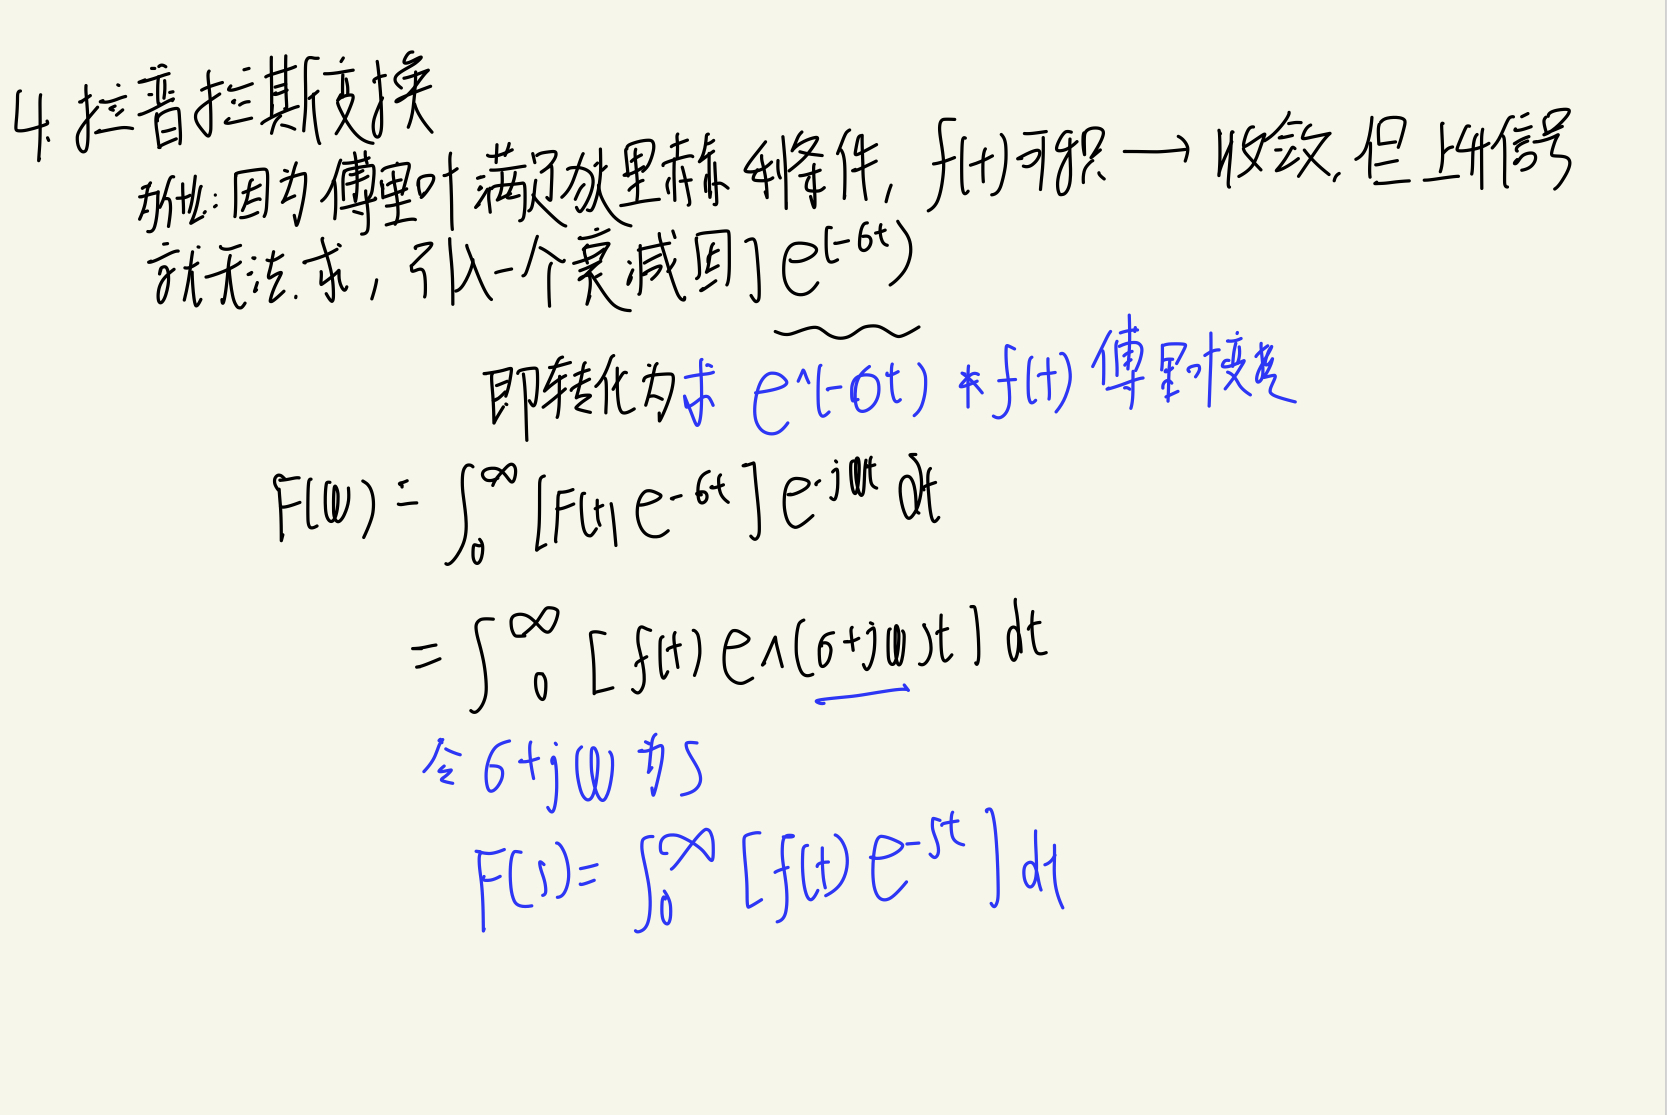 4. 拉普拉斯变换
因为傅里叶满足狄里赫利条件, f(t)可积 → 收敛, 但上升信号
就无法求, 引入一个衰减因子 e^(-σt)
即转化为求 e^(-σt) * f(t) 傅里叶变换
F(ω) = ∫₀^∞ [F(t) e^-σt] e^-jωt dt
= ∫₀^∞ [f(t) e^(σ+jω)t] dt
令 σ+jω 为 s
F(s) = ∫₀^∞ [f(t) e^-st] dt